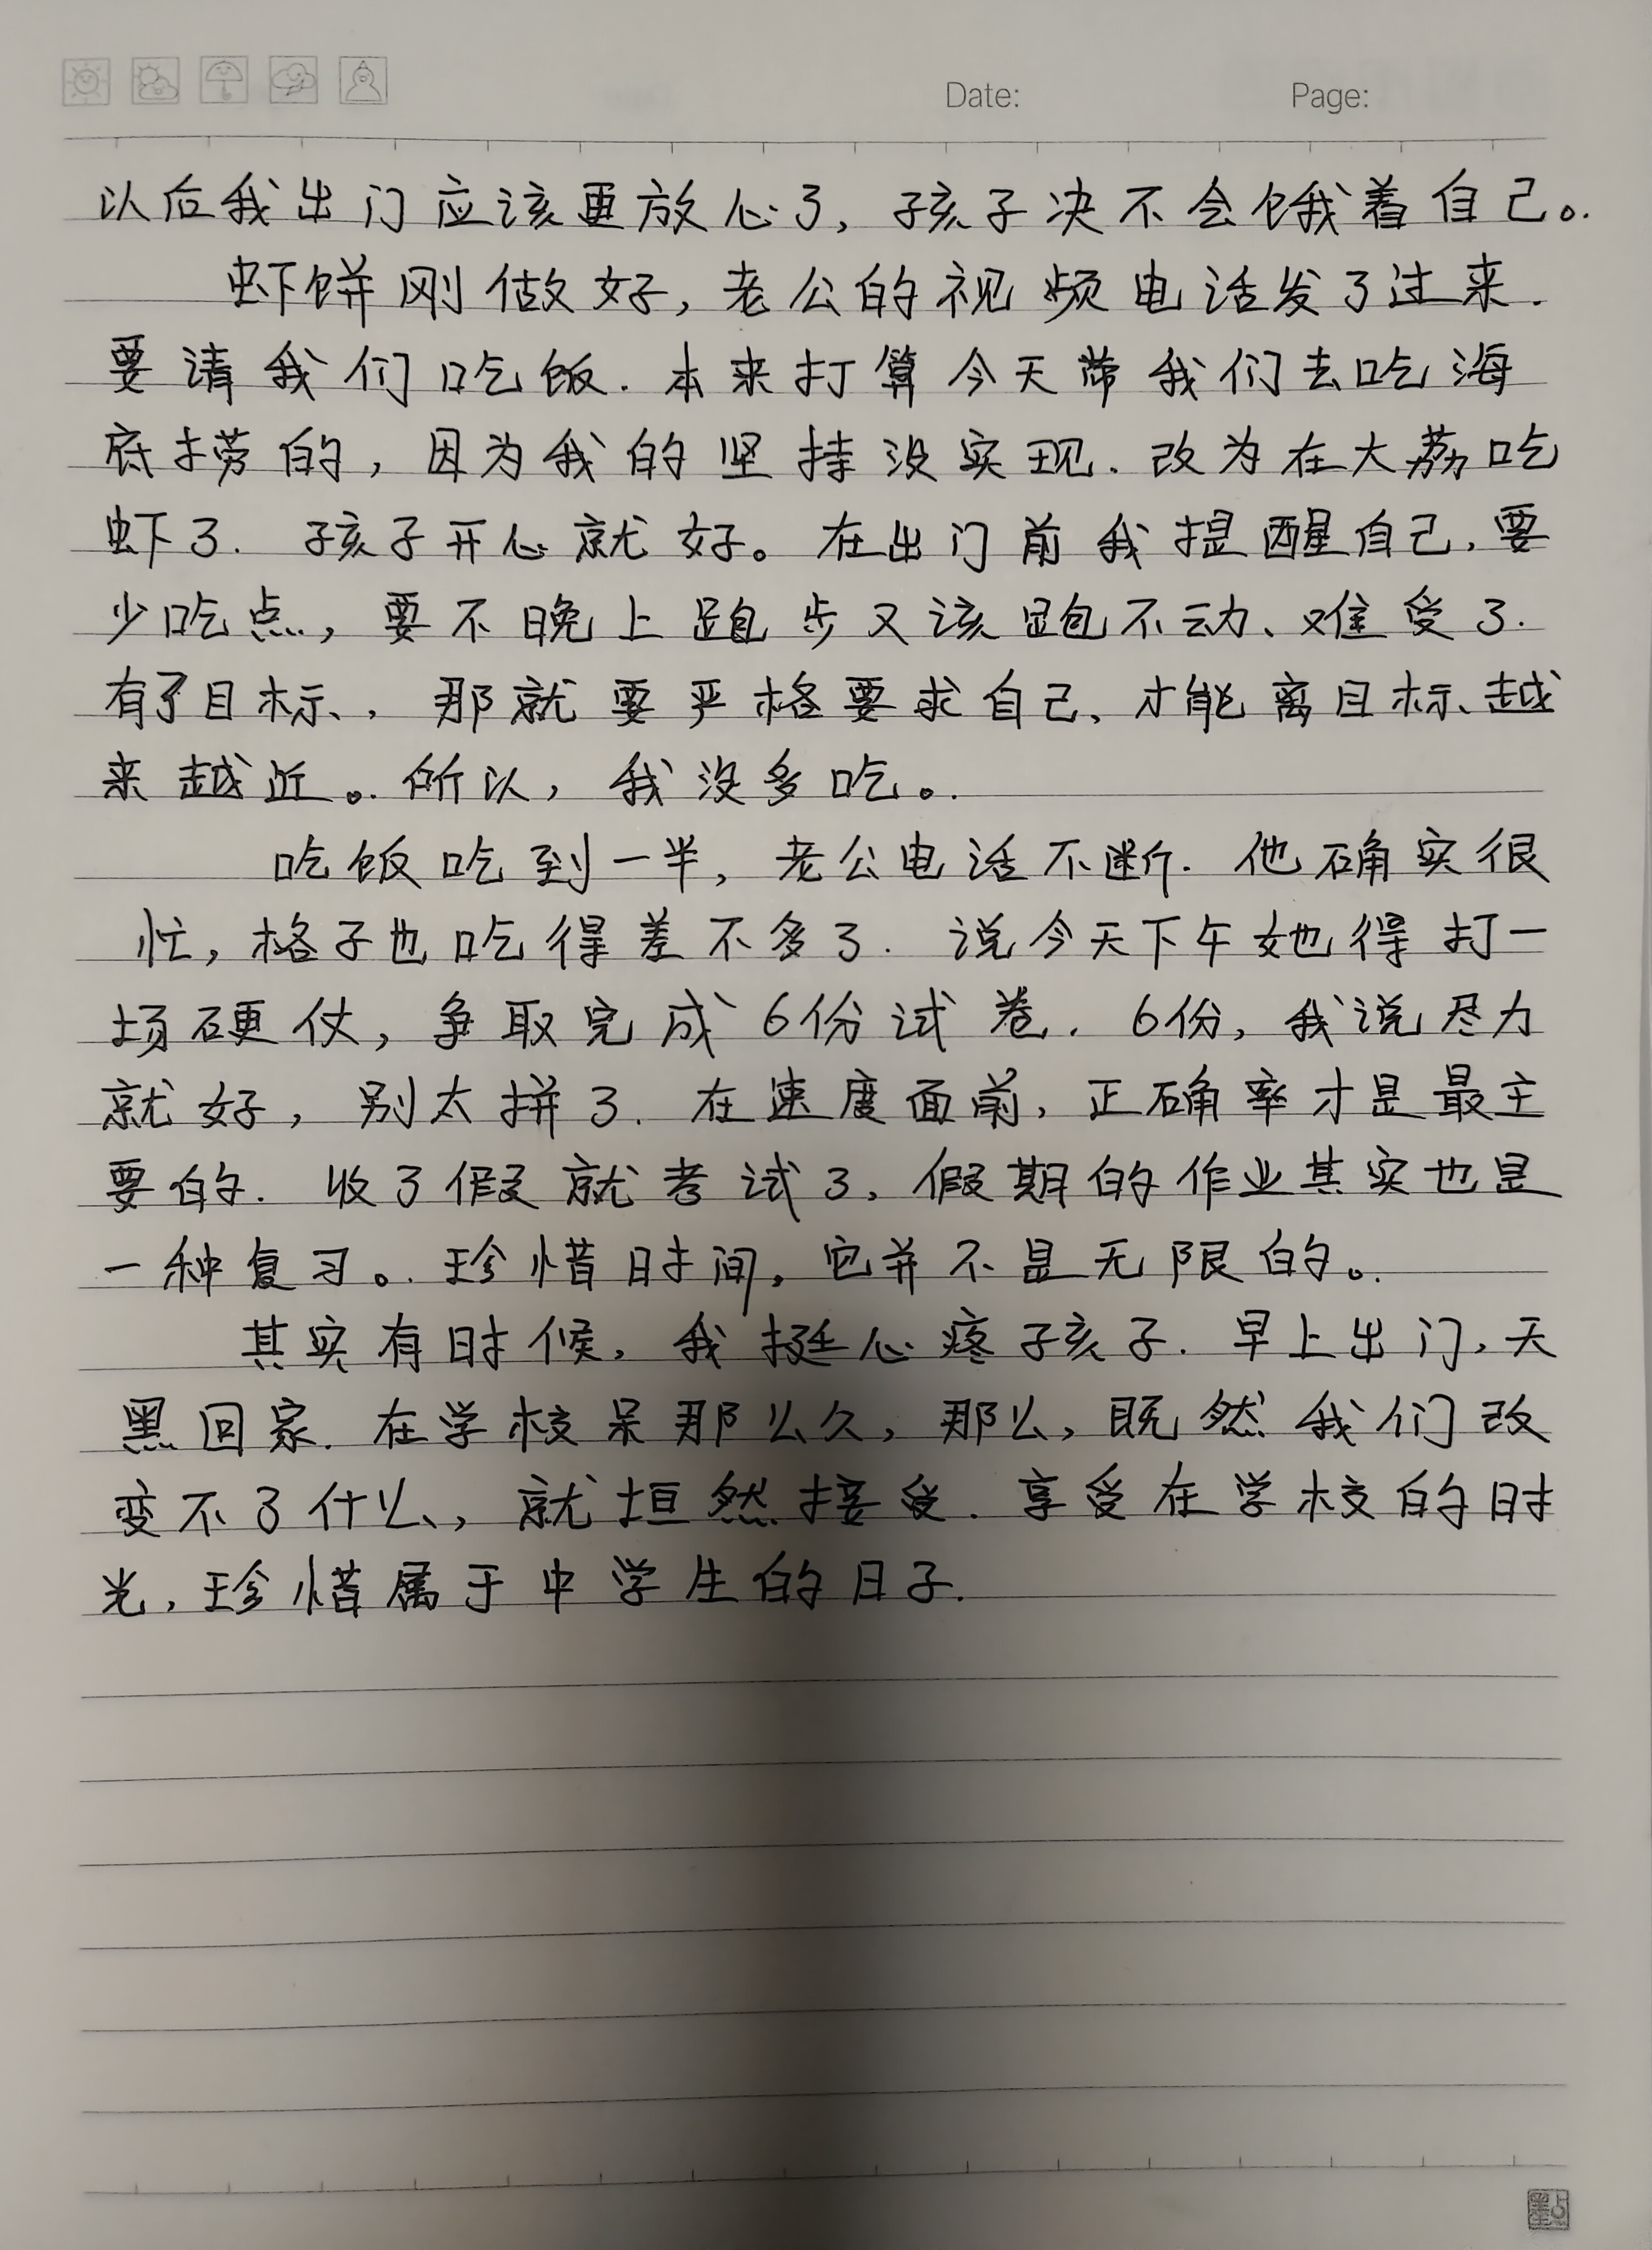 Date: Page:
以后我出门应该更放心了,孩子决不会饿着自己。
虾饼刚做好,老公的视频电话发了过来.
要请我们吃饭.本来打算今天带我们去吃海
底捞的,因为我的坚持没实现.改为在大荔吃
虾了.孩子开心就好。在出门前我提醒自己,要
少吃点,要不晚上跑步又该跑不动、难受了.
有了目标,那就要严格要求自己、才能离目标越
来越近。所以,我没多吃。
吃饭吃到一半,老公电话不断.他确实很
忙,格子也吃得差不多了.说今天下午她得打一
场硬仗,争取完成6份试卷.6份,我说尽力
就好,别太拼了.在速度面前,正确率才是最主
要的.收了假就考试了,假期的作业其实也是
一种复习。珍惜时间,它并不是无限的。
其实有时候,我挺心疼孩子.早上出门,天
黑回家.在学校呆那么久,那么,既然我们改
变不了什么,就坦然接受.享受在学校的时
光,珍惜属于中学生的日子.
點